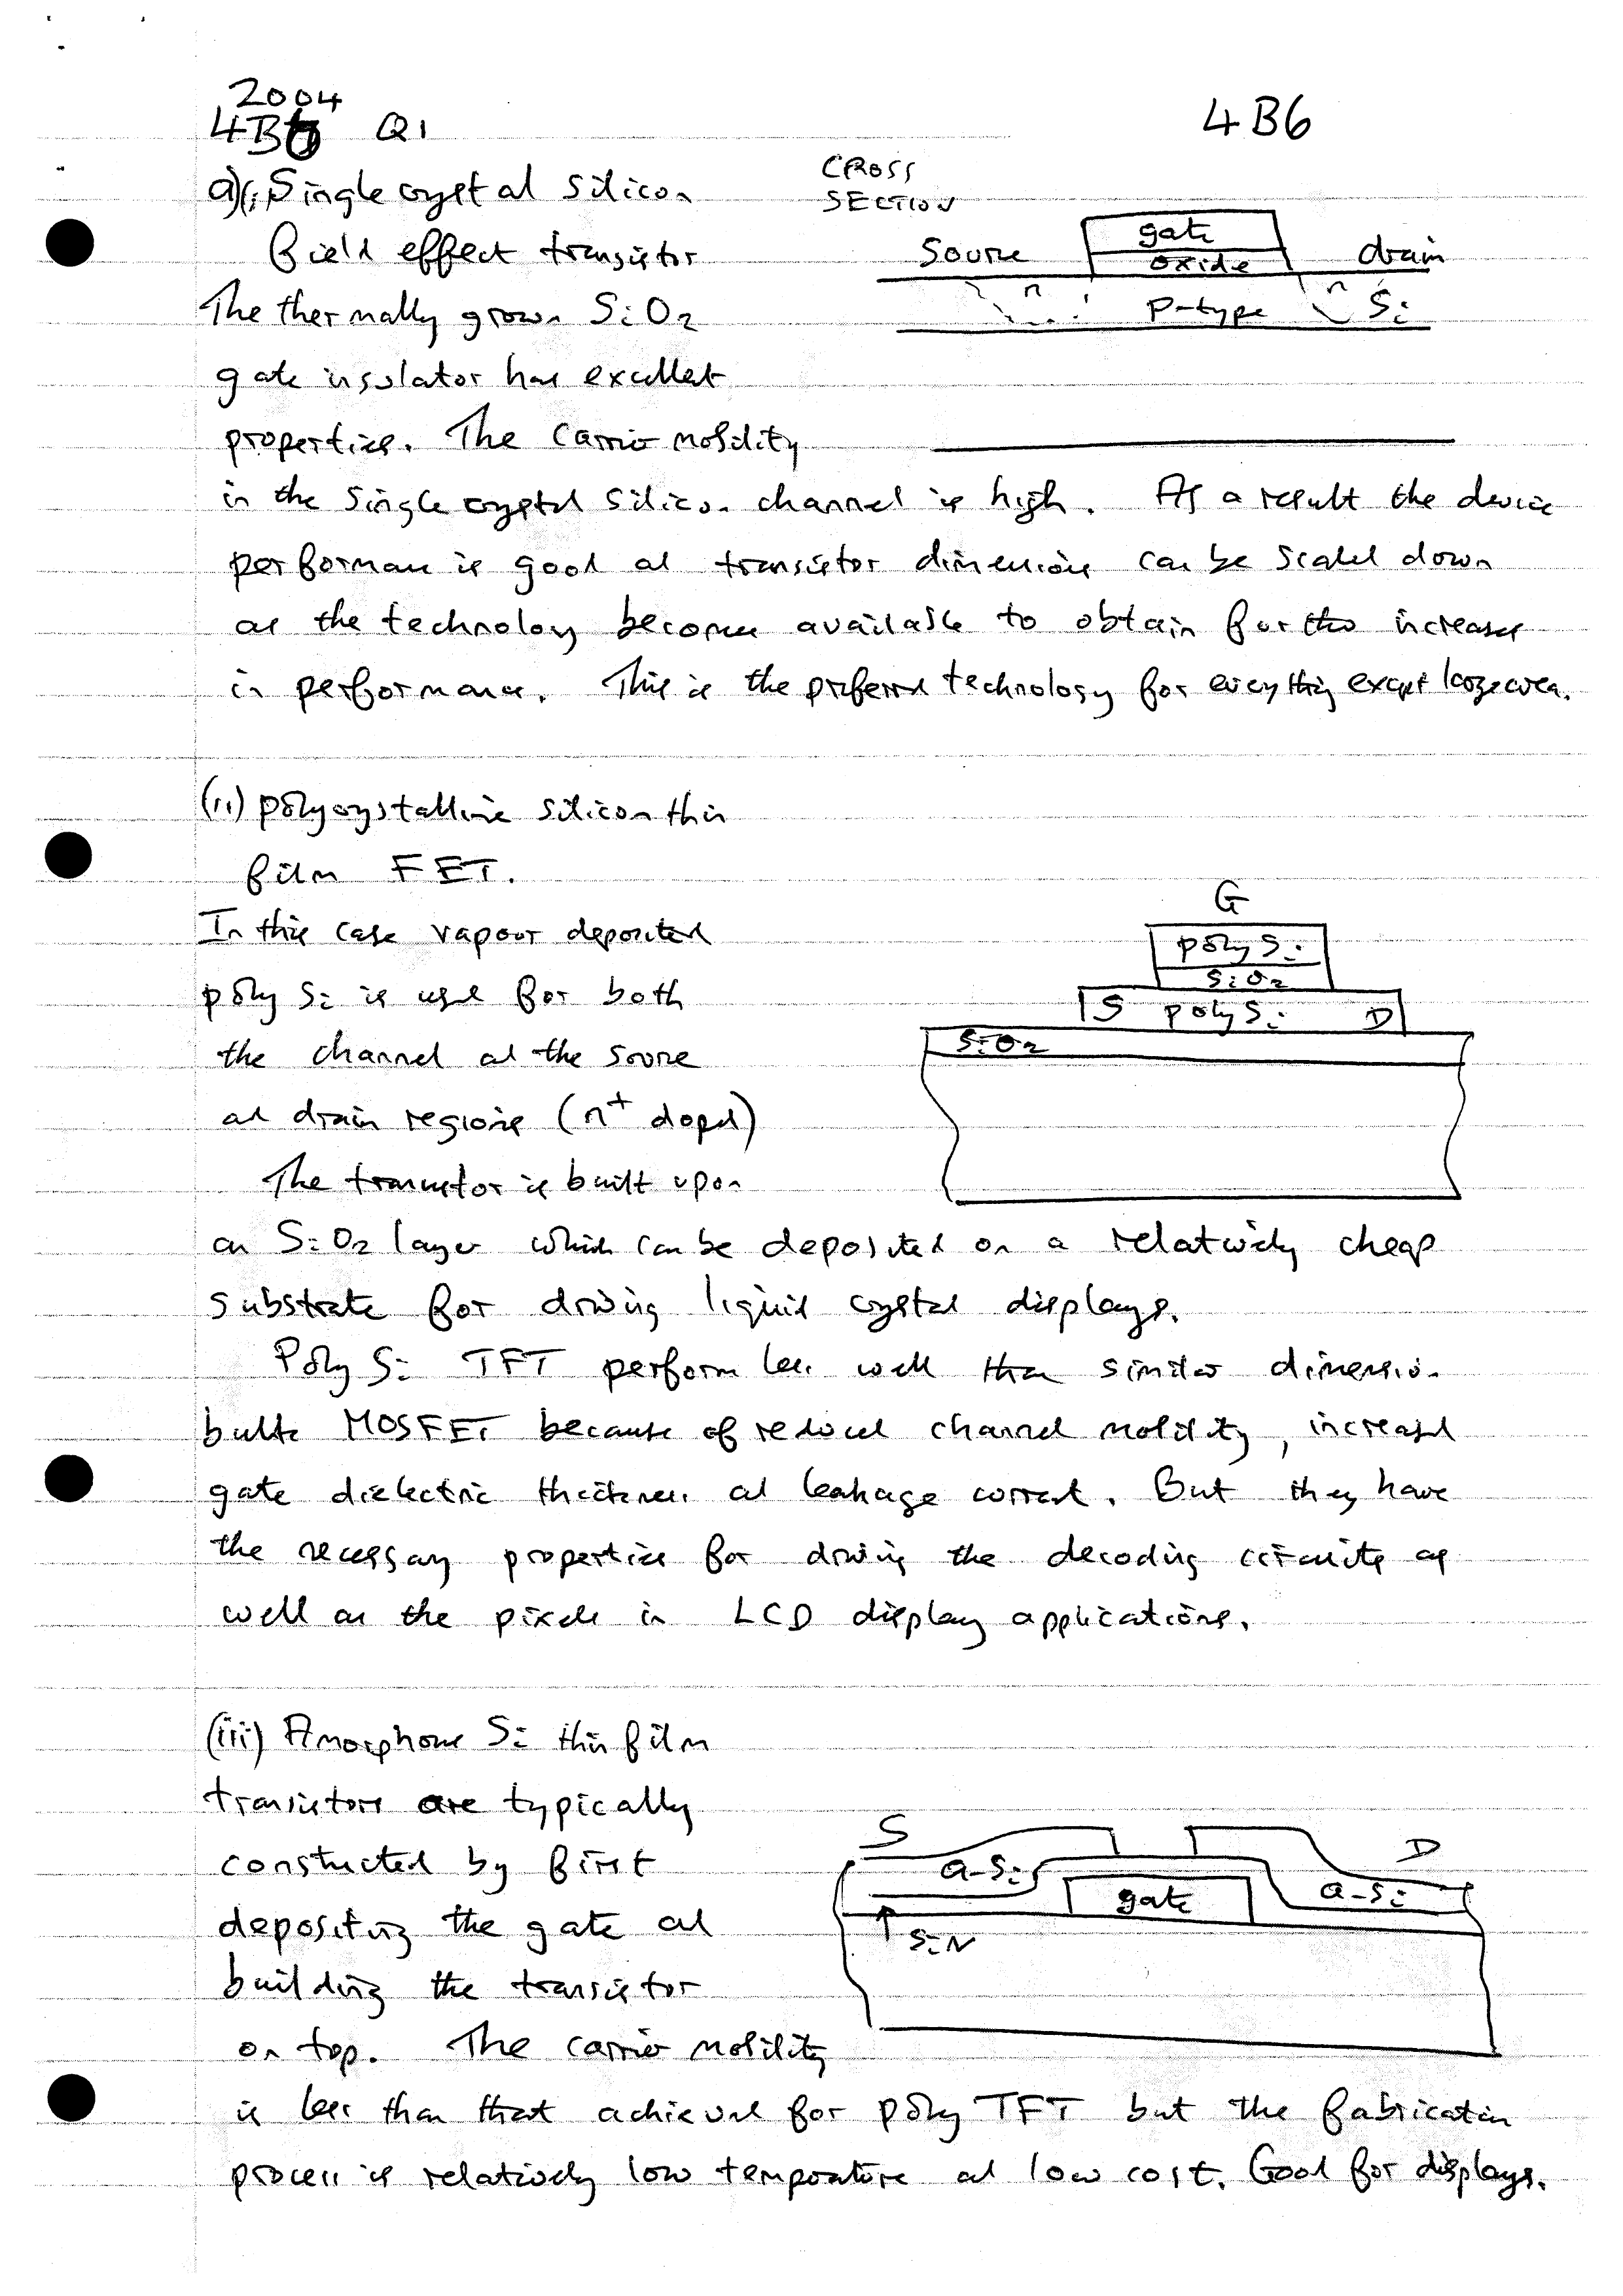 2004
4B6 Q1
4B6
a)(i) Single crystal silicon
field effect transistor
CROSS
SECTION
Source gate drain
oxide
n p-type n Si
The thermally grown SiO2
gate insulator has excellent
properties. The carrier mobility
in the single crystal silicon channel is high. As a result the device
performance is good and transistor dimensions can be scaled down
as the technology becomes available to obtain further increases
in performance. This is the preferred technology for everything except large area.
(ii) polycrystalline silicon thin
film FET.
In this case vapour deposited
poly Si is used for both
the channel and the source
and drain regions (n+ doped)
The transistor is built upon
G
poly Si
SiO2
S poly Si D
SiO2
an SiO2 layer which can be deposited on a relatively cheap
substrate for driving liquid crystal displays.
Poly Si TFT perform less well than similar dimension
bulk MOSFET because of reduced channel mobility, increased
gate dielectric thickness and leakage current. But they have
the necessary properties for driving the decoding circuits as
well as the pixels in LCD display applications.
(iii) Amorphous Si thin film
transistors are typically
constructed by first
depositing the gate and
building the transistor
on top. The carrier mobility
S D
a-Si gate a-Si
SiN
is less than that achieved for poly TFT but the fabrication
process is relatively low temperature and low cost. Good for displays.